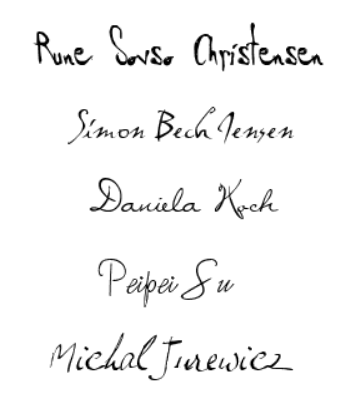 Rune Sovso Christensen
Simon Bech Jensen
Daniela Koch
Peipei Su
Michal Jurewicz